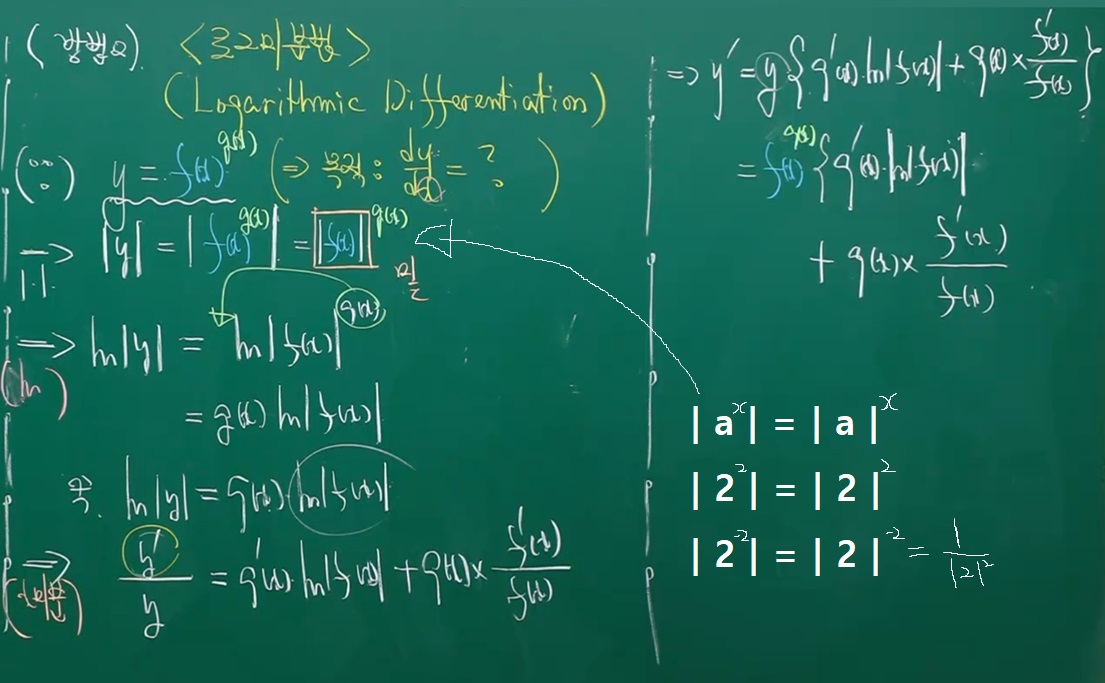 (방법2). <로그미분법>
(Logarithmic Differentiation)
(∵) y = f(x)^{g(x)} (⇒ 목적 : dy/dx = ? )
⇒ |y| = |f(x)^{g(x)}| = |f(x)|^{g(x)}
|·| 밑
⇒ ln|y| = ln|f(x)|^{g(x)}
(ln)
= g(x) ln|f(x)|
즉. ln|y| = g(x) ln|f(x)|
⇒ y'/y = g'(x) ln|f(x)| + g(x) × f'(x)/f(x)
(미분)
⇒ y' = y{g'(x)·ln|f(x)| + g(x) × f'(x)/f(x)}
= f(x)^{g(x)} {g'(x)·ln|f(x)|
+ g(x) × f'(x)/f(x)
| a^x | = | a |^x
| 2^2 | = | 2 |^2
| 2^-2 | = | 2 |^-2 = 1/|2|^2